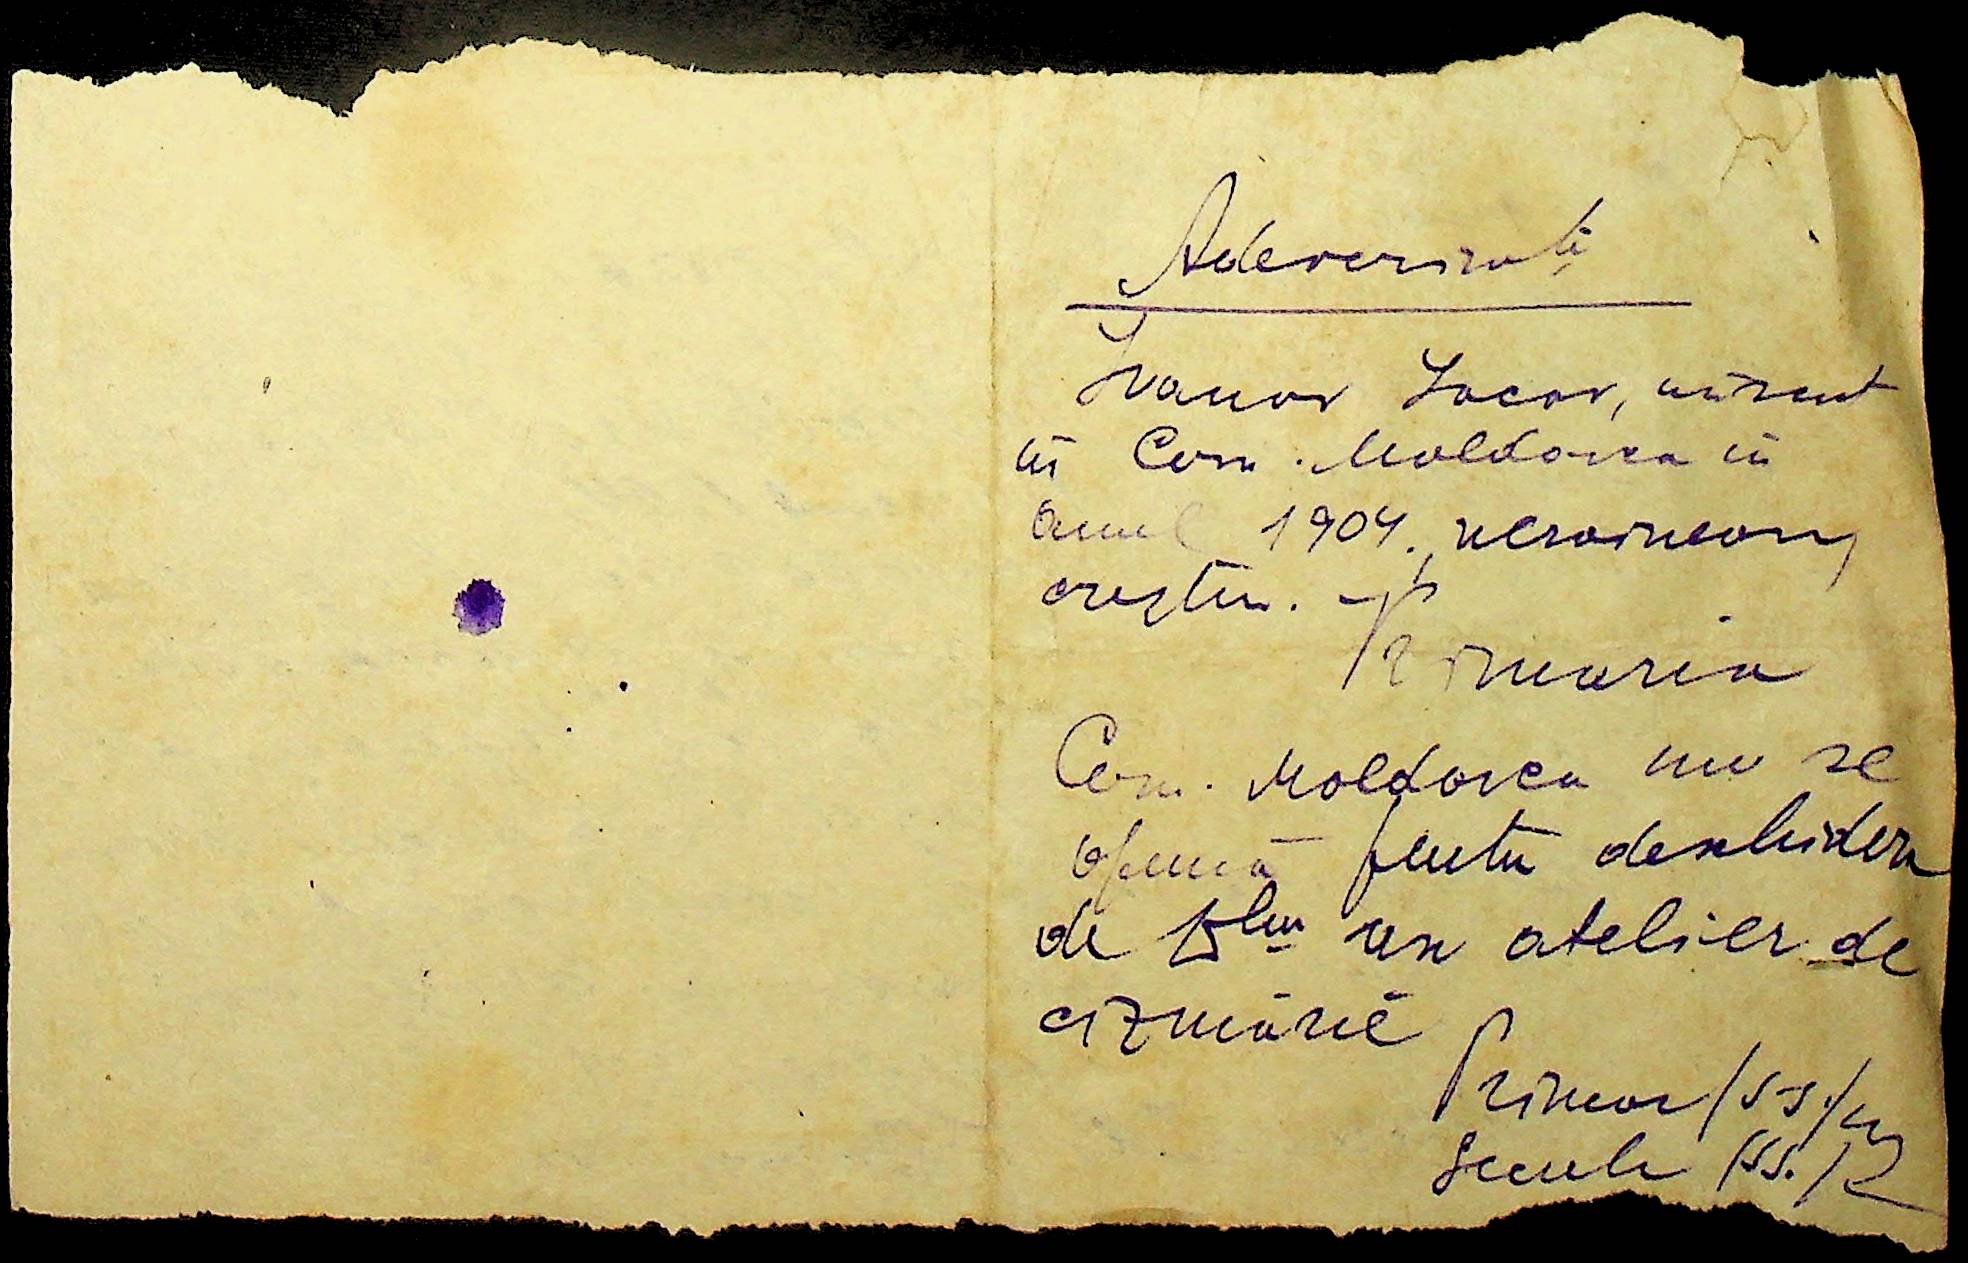 Adeverință
Ivanov Iacov, născut
în Com. Moldovca în
anul 1904, ucrainean,
creștin.
Primăria
Com. Moldovca nu se
opune pentru deschidere
de un atelier de
cizmărie
Primar /ss./
/ss./